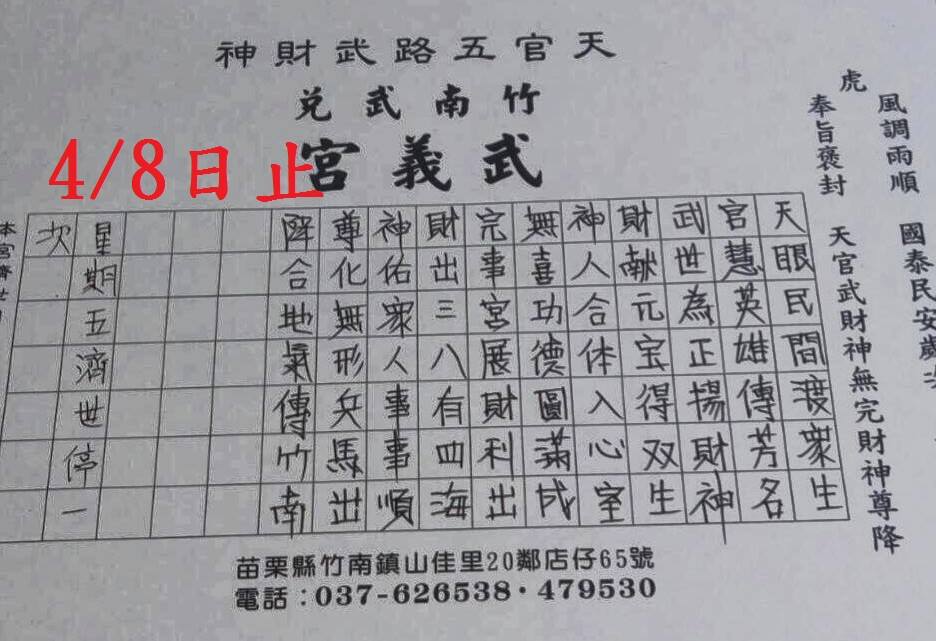 天官五路武財神
竹南武兌
武義宮
4/8日止
虎
風調雨順 國泰民安歲次
奉旨褒封 天官武財神無完財神尊降
天眼民間渡眾生
官慧英雄傳芳名
武世為正揚財神
財献元宝得双生
神人合体入心室
無喜功德圓滿成
完事宮展財利出
財出三八有四海
神佑眾人事事順
尊化無形兵馬出
降合地氣傳竹南
星期五濟世停一
次
本宮濟世
苗栗縣竹南鎮山佳里20鄰店仔65號
電話：037-626538・479530